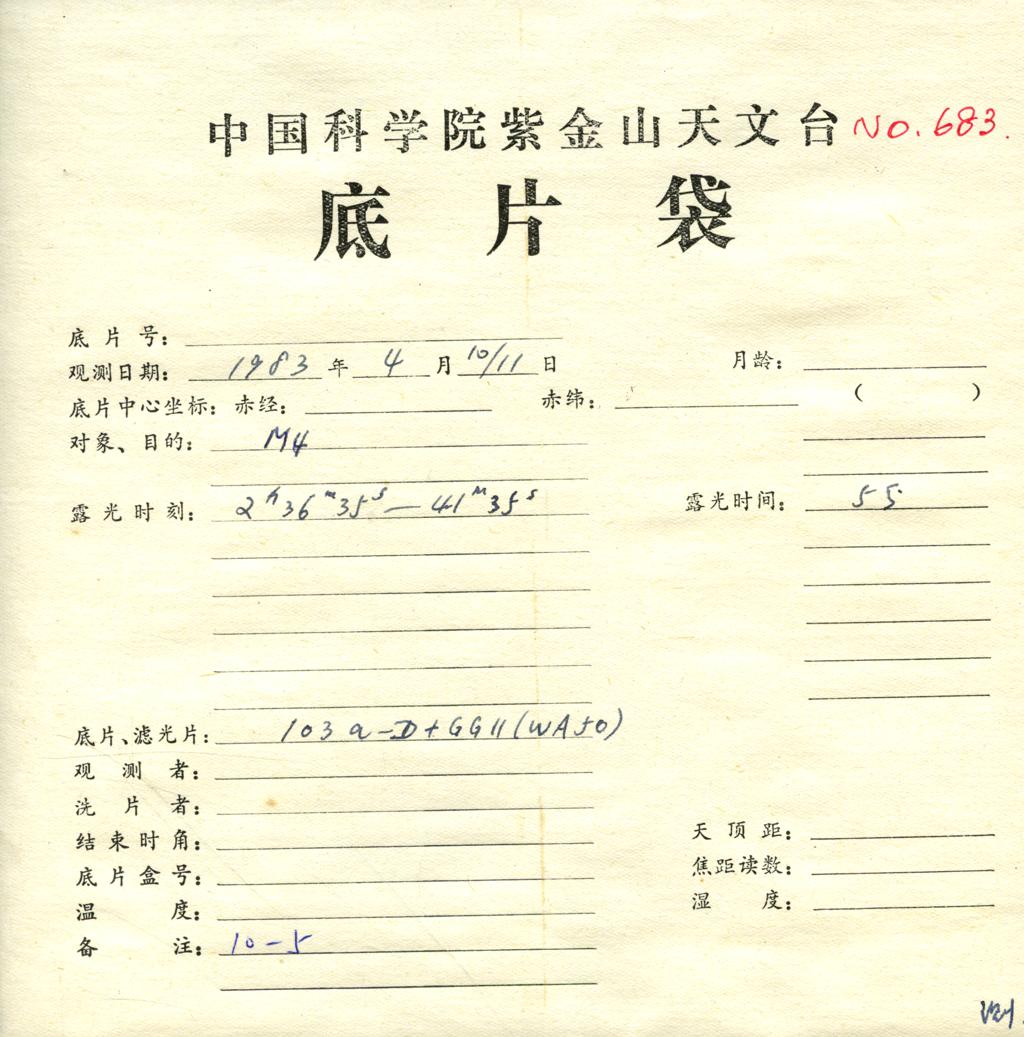 中国科学院紫金山天文台 No. 683.
底片袋
底片号:
观测日期: 1983 年 4 月 10/11 日 月龄:
底片中心坐标: 赤经: 赤纬: ( )
对象、目的: M4
露光时刻: 2h36m35s — 41m35s 露光时间: 55
底片、滤光片: 103a-D+GG11(WA50)
观测者:
洗片者:
结束时角: 天顶距:
底片盒号: 焦距读数:
温度: 湿度:
备注: 10-5
测.